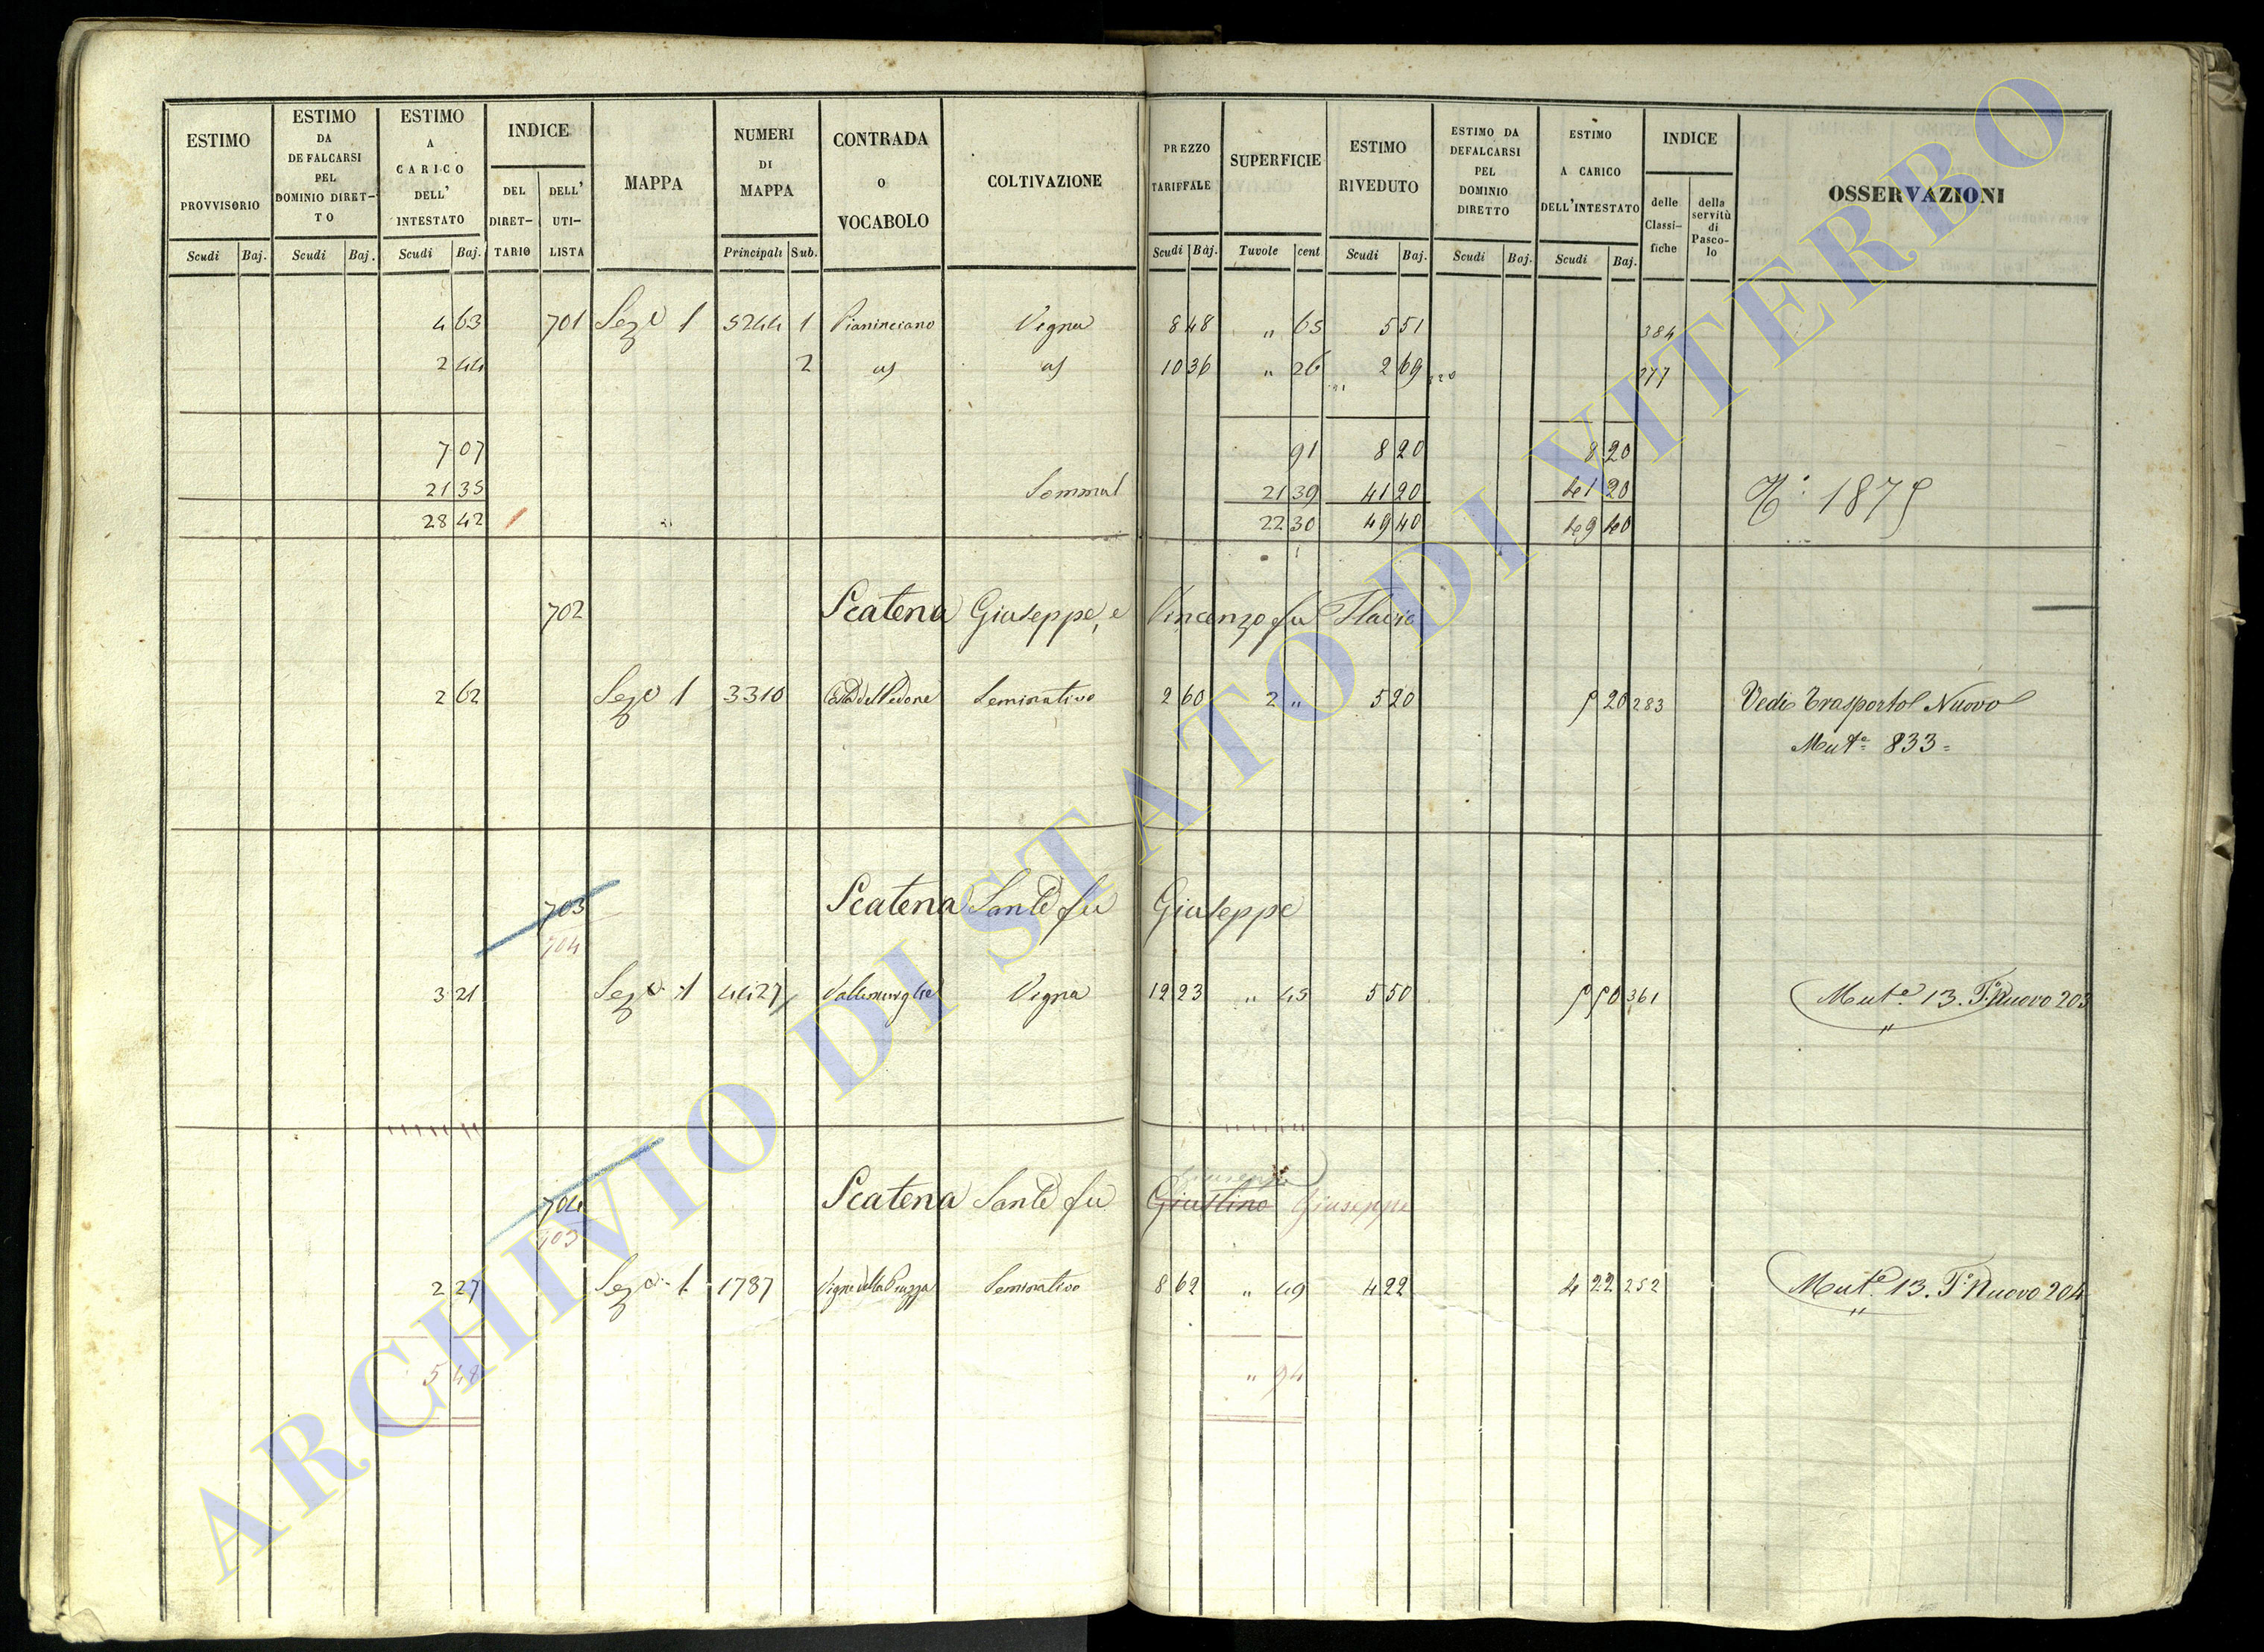 ESTIMO PROVVISORIO Scudi Baj.
ESTIMO DA DEFALCARSI PEL DOMINIO DIRET-TO Scudi Baj.
ESTIMO A CARICO DELL' INTESTATO Scudi Baj.
INDICE DEL DIRET-TARIO DELL' UTI-LISTA
MAPPA
NUMERI DI MAPPA Principali Sub.
CONTRADA O VOCABOLO
COLTIVAZIONE
PREZZO TARIFFALE Scudi Baj.
SUPERFICIE Tavole cent
ESTIMO RIVEDUTO Scudi Baj.
ESTIMO DA DEFALCARSI PEL DOMINIO DIRETTO Scudi Baj.
ESTIMO A CARICO DELL'INTESTATO Scudi Baj.
INDICE delle Classi-fiche della servitù di Pasco-lo
OSSERVAZIONI
4 63 701 Seze 1 5244 1 Pianinciano Vigna 8 48 " 65 5 51 384
2 44 2 10 36 " 26 2 69 377
7 07 91 8 20 8 20
21 35 Sommal 21 39 41 20 41 20 1875
28 42 22 30 49 40 49 40
702 Scatena Giuseppe, e Vincenzo fu Flavio
2 62 Seze 1 3310 Seminativo 2 60 2 " 5 20 5 20 283 Vedi Trasporto Nuovo
Mute 833=
703 Scatena Sante fu Giuseppe
704
3 21 Seze 1 4427 Vigna 12 23 " 45 5 50 5 50 361 Mute 13. T. Nuovo 203
704 Scatena Sante fu Giustino Giuseppe
703
2 27 Seze 1 1787 Seminativo 8 62 " 49 4 22 4 22 252 Mute 13. T. Nuovo 204
5 48 " 94
ARCHIVIO DI STATO DI VITERBO